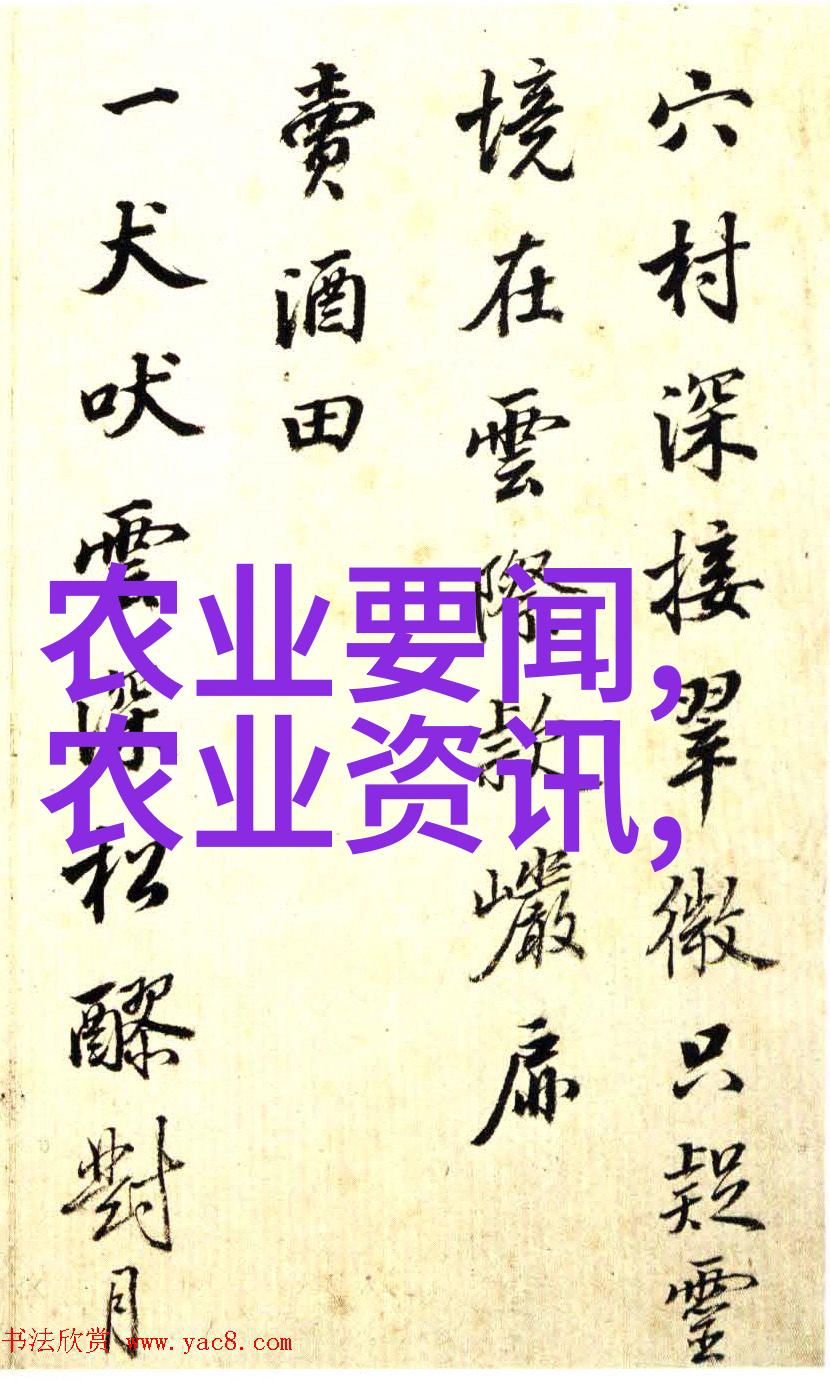 穴村深接翠微只疑靈
境在雲際敲巖扉
賣酒田
一犬吠雲深松醪對月
农业要闻,
农业资讯,
书法欣赏 www.yac8.com